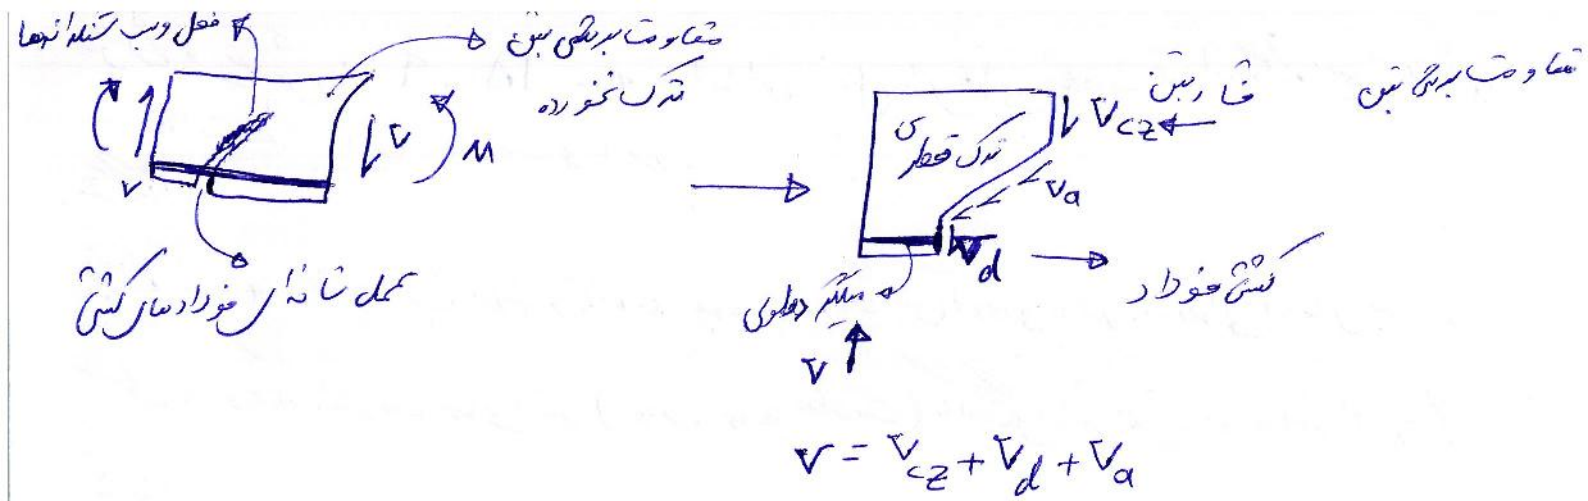 قفل و بست سنگدانه‌ها
مقاومت برشی بتن
ترک نخورده
V
V
M
عمل شانه‌ای فولادهای کششی
ترک قطری
فشار بتن
مقاومت برشی بتن
Vcz
Va
Vd
کشش فولاد
میلگرد طولی
V
V = Vcz + Vd + Va